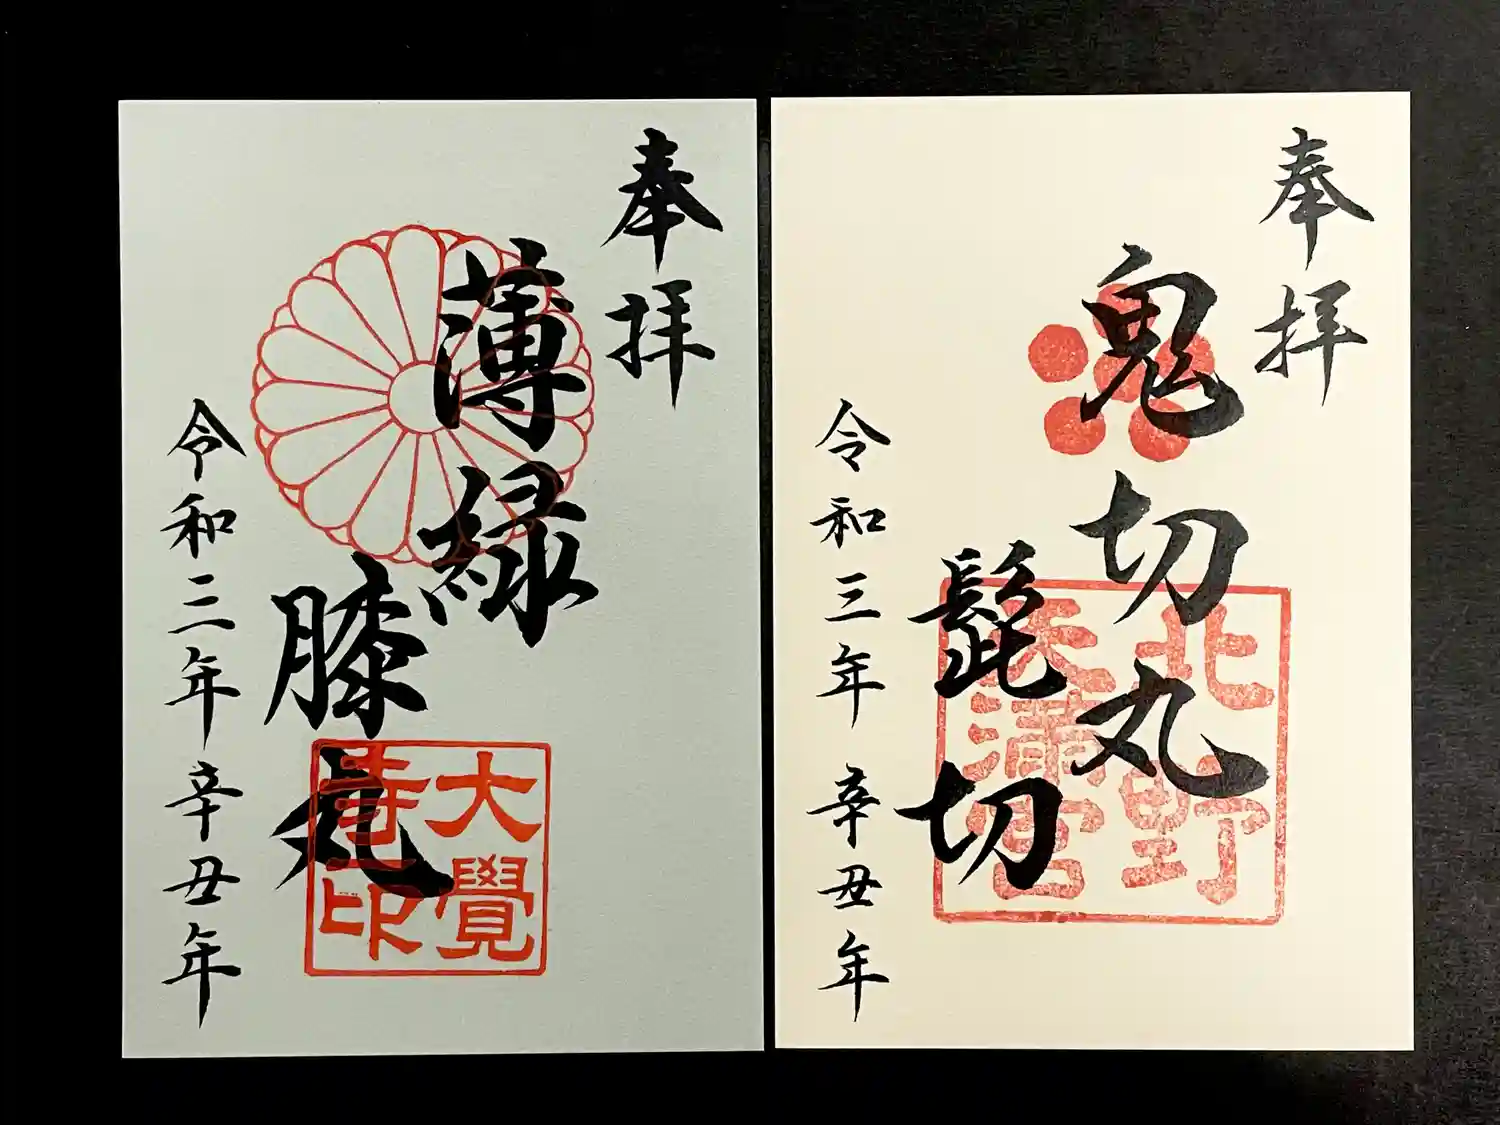 奉拝
鬼切丸
髭切
北野
天滿宮
令和三年辛丑年
奉拝
薄緑
膝丸
大覺
寺印
令和三年辛丑年